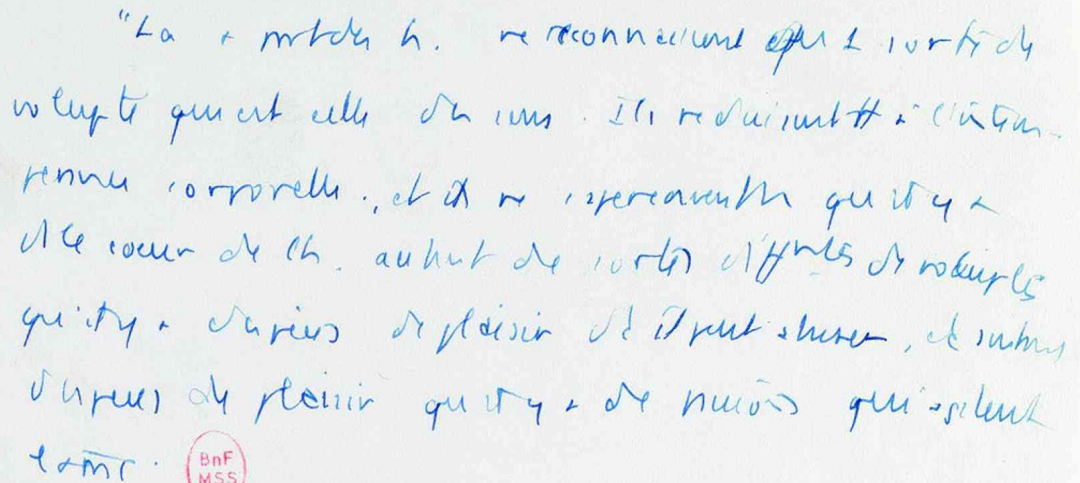 "La + part des h. ne reconnaissent qu'1 sorte de
volupté qui est celle des sens. Ils réduisent tt à l'intem-
pérance corporelle, et ils ne s'aperçoivent pas qu'il y a
ds le coeur de l'h. autant de sortes différentes de voluptés
qu'il y a d'espèces de plaisir dt il peut abuser, et autant
d'espèces de plaisir qu'il y a de passions qui agitent
l'âme.
BnF
MSS